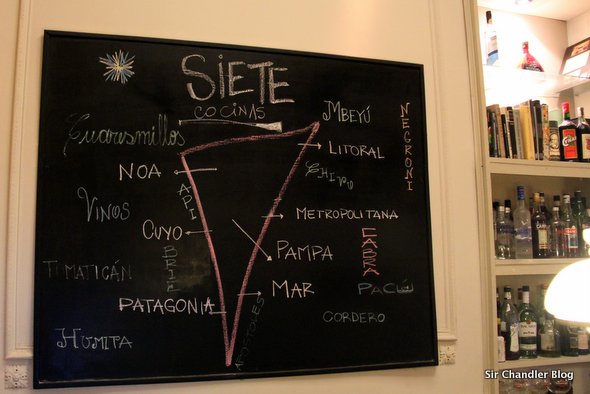 SIETE
COCINAS
Cuaresmillos
MBEYÚ
NEGRONI
LITORAL
NOA
CHIVU
API
VINOS
METROPOLITANA
CUYO
CABRA
BRIE
PAMPA
PATAGONIA
MAR
PACÚ
CORDERO
HUMITA
Sir Chandler Blog